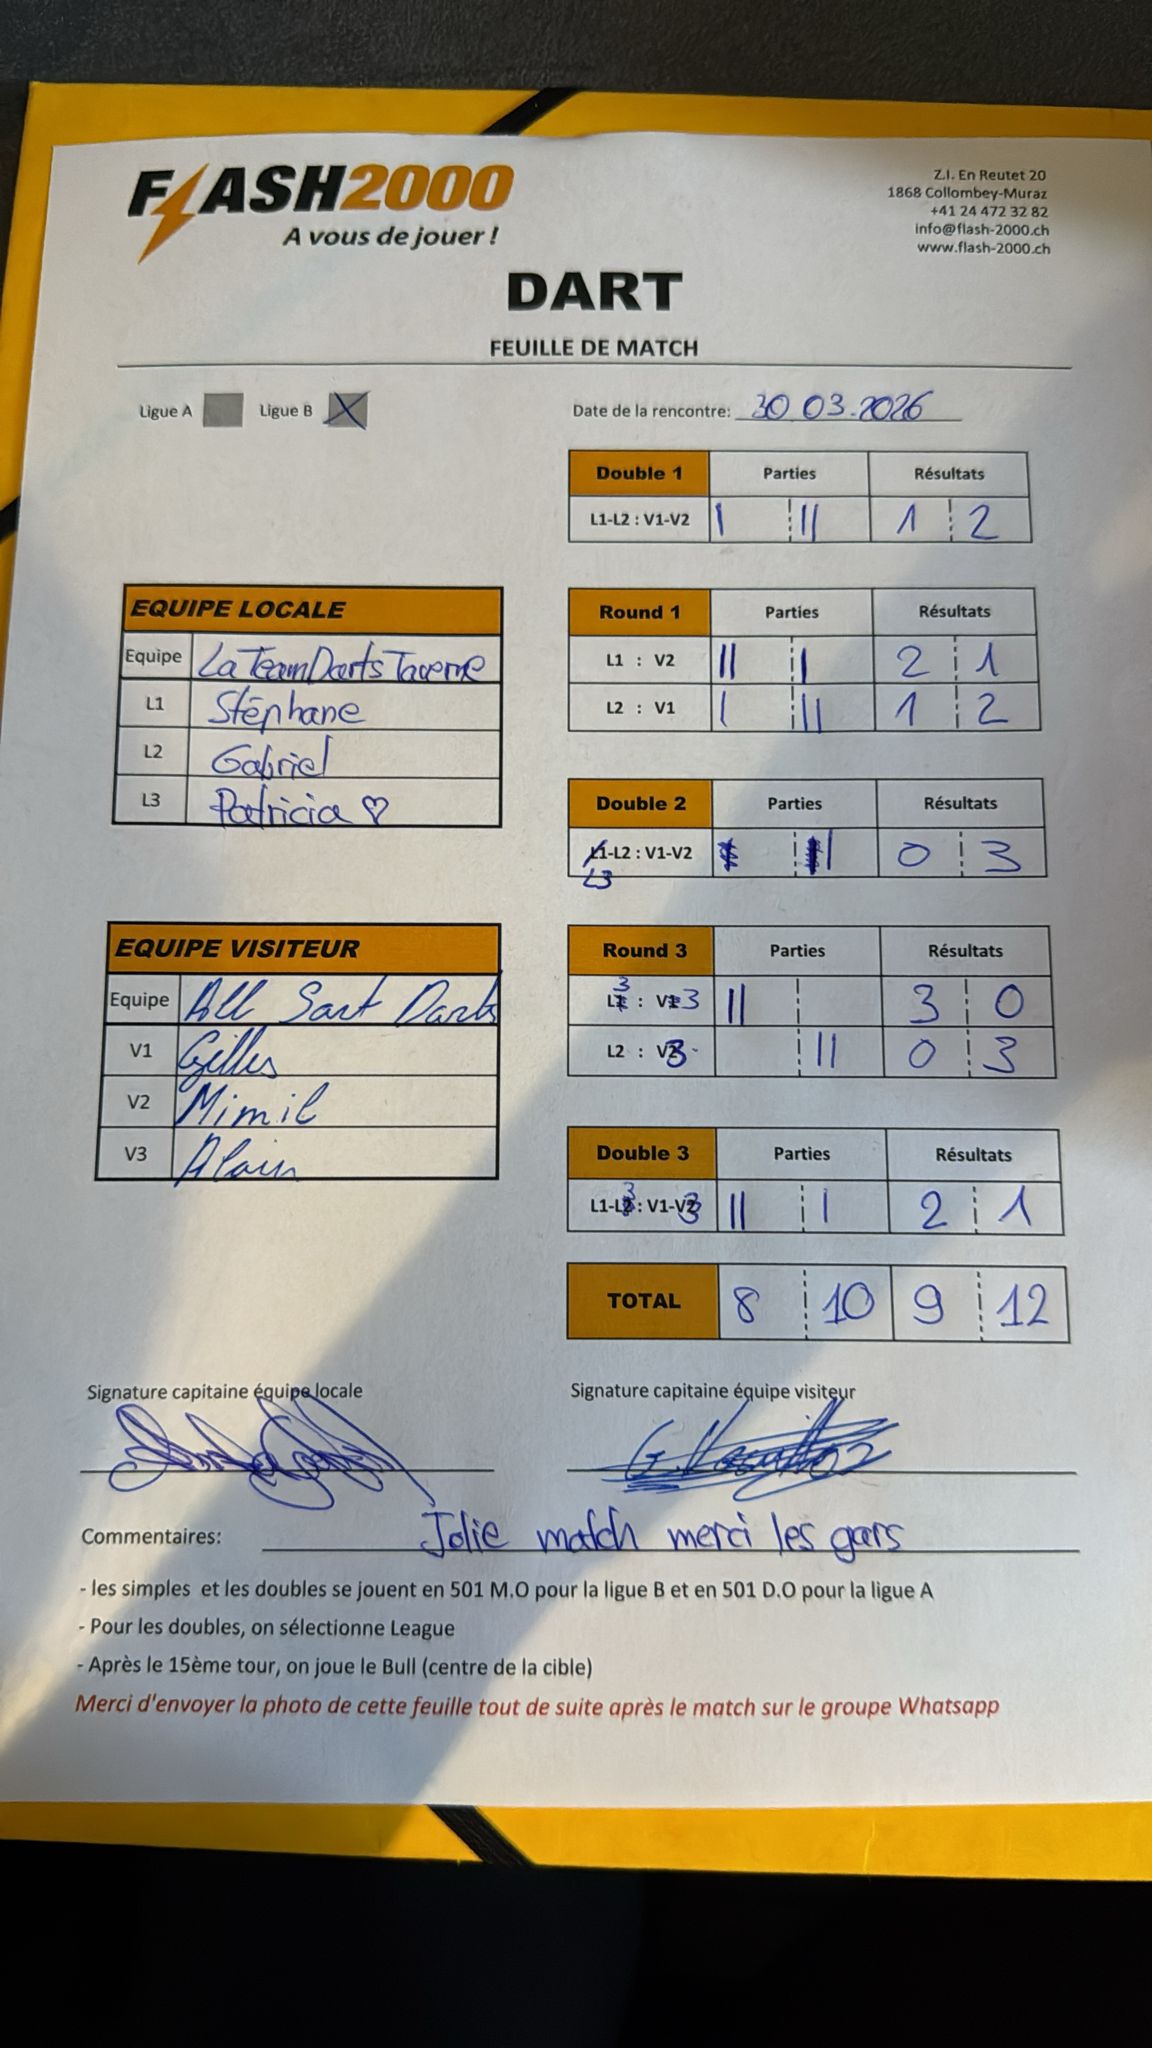 FLASH2000
A vous de jouer !
Z.I. En Reutet 20
1868 Collombey-Muraz
+41 24 472 32 82
info@flash-2000.ch
www.flash-2000.ch
DART
FEUILLE DE MATCH
Ligue A Ligue B X Date de la rencontre: 30 03.2026
Double 1 Parties Résultats
L1-L2 : V1-V2 | || 1 2
EQUIPE LOCALE
Equipe La Team Darts Taverne
L1 Stéphane
L2 Gabriel
L3 Patricia ♡
Round 1 Parties Résultats
L1 : V2 || | 2 1
L2 : V1 | || 1 2
Double 2 Parties Résultats
L1-L2 : V1-V2 0 3
L3
EQUIPE VISITEUR
Equipe All Sart Darts
V1 Gilles
V2 Mimil
V3 Alain
Round 3 Parties Résultats
L3 : V3 || 3 0
L2 : V3 || 0 3
Double 3 Parties Résultats
L1-L3 : V1-V3 || | 2 1
TOTAL 8 10 9 12
Signature capitaine équipe locale Signature capitaine équipe visiteur
Commentaires: Jolie match merci les gars
- les simples et les doubles se jouent en 501 M.O pour la ligue B et en 501 D.O pour la ligue A
- Pour les doubles, on sélectionne League
- Après le 15ème tour, on joue le Bull (centre de la cible)
Merci d'envoyer la photo de cette feuille tout de suite après le match sur le groupe Whatsapp